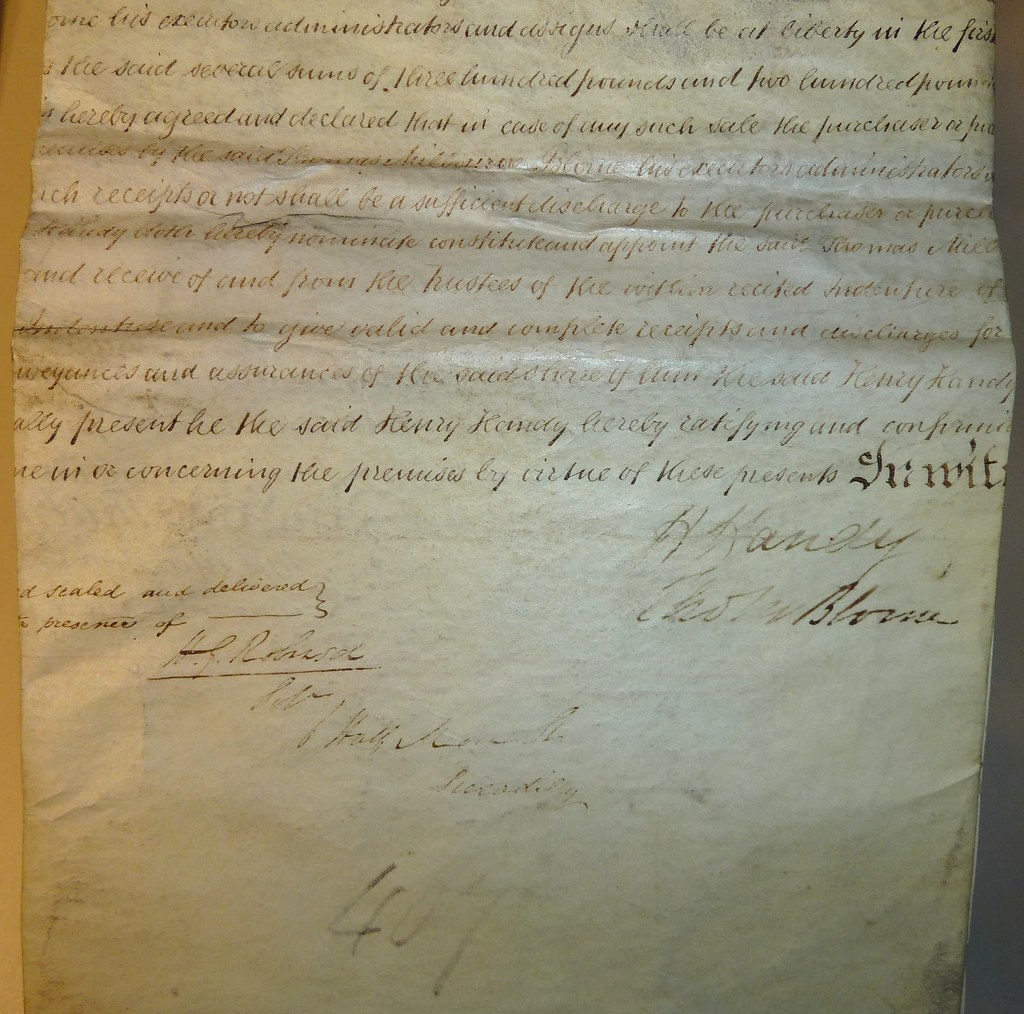 ome his executors administrators and assigns shall be at liberty in the firs
the said several sums of three hundred pounds and two hundred poun
hereby agreed and declared that in case of any such sale the purchaser or pur
remises by the said Thomas Milbourne Blome his executors administrators
uch receipts or not shall be a sufficient discharge to the purchaser or purch
Handy doth hereby nominate constitute and appoint the said Thomas Mil
and receive of and from the trustees of the within recited Indenture of
Indenture and to give valid and complete receipts and discharges for
veyances and assurances of the said share of him the said Henry Handy
ally present he the said Henry Handy hereby ratifying and confirmin
me in or concerning the premises by virtue of these presents In wit
H Handy
Thos M Blome
d sealed and delivered
presence of
H. G.
Sol
6 Half Moon St
Piccadilly
467